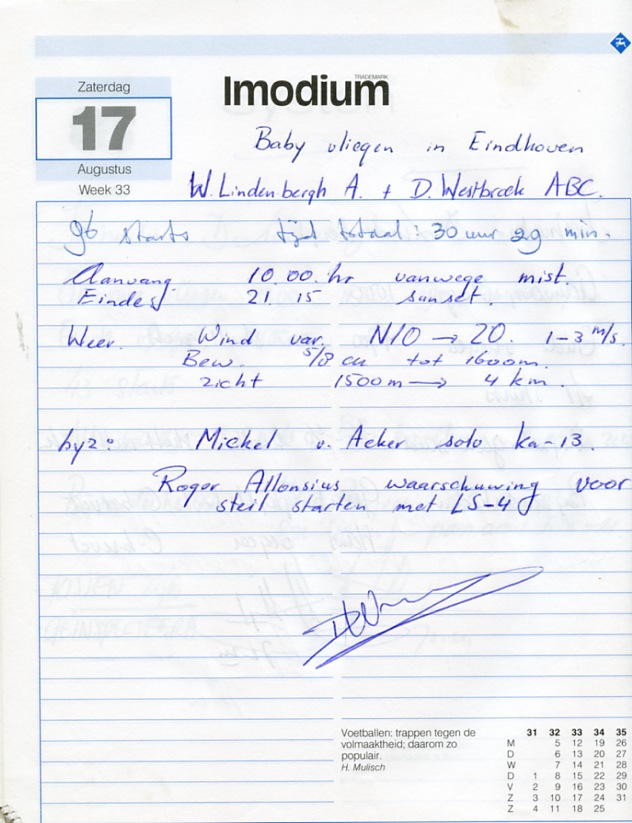 Zaterdag
17
Augustus
Week 33
TRADEMARK
Imodium
Baby vliegen in Eindhoven
W. Lindenbergh A. + D. Westbroek ABC.
96 starts tijd totaal: 30 uur 29 min.
Aanvang. 10.00. hr vanwege mist.
Eindes 21. 15 sunset.
Weer. Wind var. N/O → 20. 1-3 m/s.
Bew. 5/8 cu tot 1600m.
zicht 1500m → 4 km.
byz: Mickel v. Acker solo ka-13.
Roger Allonsius waarschuwing voor
steil starten met LS-4
Voetballen: trappen tegen de
volmaaktheid; daarom zo
populair.
H. Mulisch
31 32 33 34 35
M 5 12 19 26
D 6 13 20 27
W 7 14 21 28
D 1 8 15 22 29
V 2 9 16 23 30
Z 3 10 17 24 31
Z 4 11 18 25